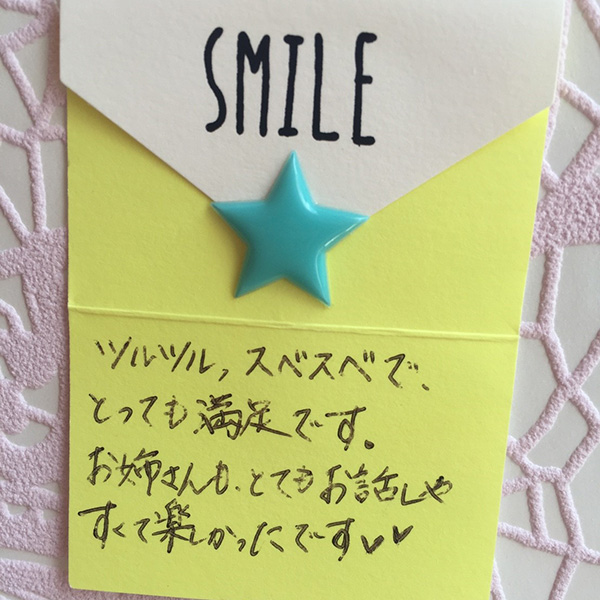 SMILE
ツルツル,スベスベで、
とっても満足です。
お姉さんも、とてもお話しや
すくて楽しかったです♥♥